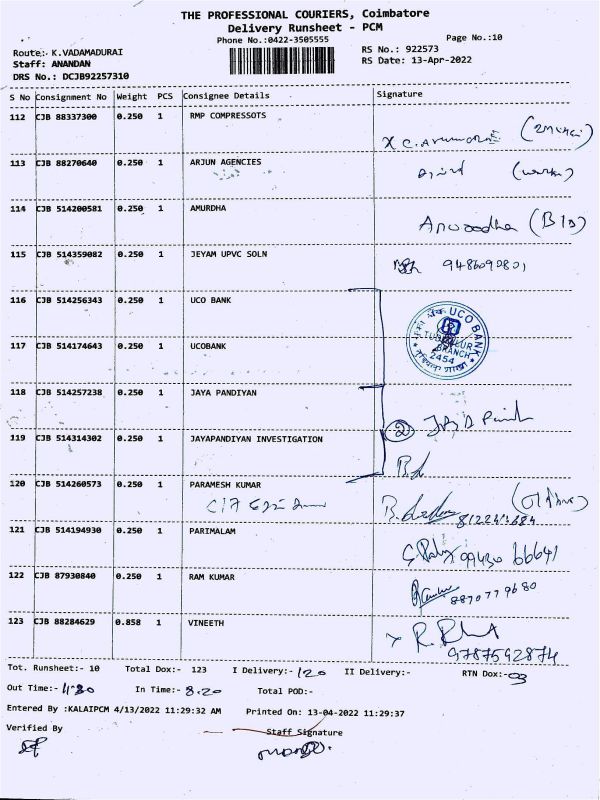 THE PROFESSIONAL COURIERS, Coimbatore
Delivery Runsheet - PCM
Phone No.:0422-3505555
Page No.:10
Route:- K.VADAMADURAI
RS No.: 922573
Staff: ANANDAN
RS Date: 13-Apr-2022
DRS No.: DCJB92257310
S No Consignment No Weight PCS Consignee Details Signature
112 CJB 88337300 0.250 1 RMP COMPRESSOTS
113 CJB 88270640 0.250 1 ARJUN AGENCIES
114 CJB 514200581 0.250 1 AMURDHA
115 CJB 514359082 0.250 1 JEYAM UPVC SOLN
116 CJB 514256343 0.250 1 UCO BANK
UCO BANK
BRANCH
2454
117 CJB 514174643 0.250 1 UCOBANK
118 CJB 514257238 0.250 1 JAYA PANDIYAN
2
119 CJB 514314302 0.250 1 JAYAPANDIYAN INVESTIGATION
120 CJB 514260573 0.250 1 PARAMESH KUMAR
121 CJB 514194930 0.250 1 PARIMALAM
122 CJB 87930840 0.250 1 RAM KUMAR
8870779680
123 CJB 88284629 0.858 1 VINEETH
9787592874
Tot. Runsheet:- 10 Total Dox:- 123 I Delivery:- 120 II Delivery:- RTN Dox:- 03
Out Time:- In Time:- 8.20 Total POD:-
Entered By :KALAIPCM 4/13/2022 11:29:32 AM Printed On: 13-04-2022 11:29:37
Verified By Staff Signature